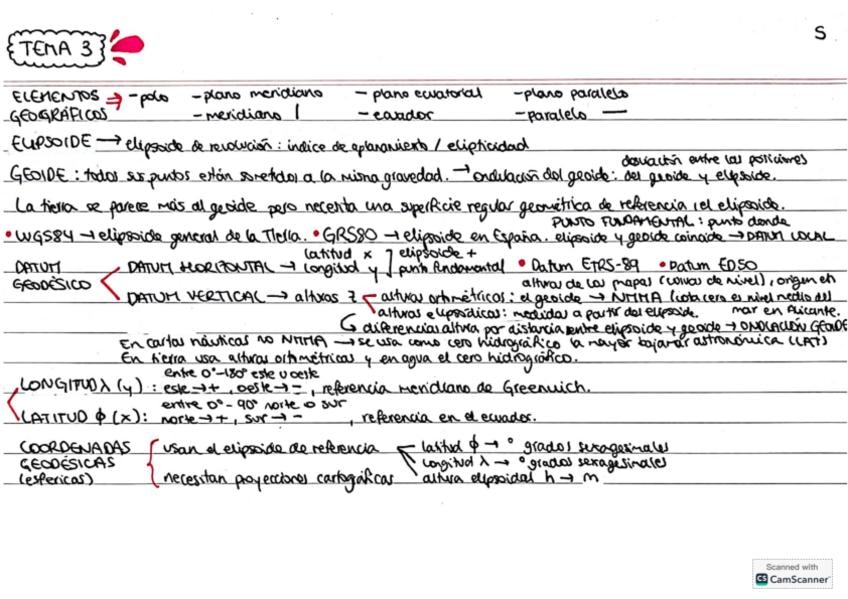 S
TEMA 3
ELEMENTOS → - polo - plano meridiano - plano ecuatorial - plano paralelo
GEOGRÁFICOS - meridiano | - ecuador - paralelo —
ELIPSOIDE → elipsoide de revolución : índice de aplanamiento / elipticidad
desviación entre las posiciones
GEOIDE : todos sus puntos están sometidos a la misma gravedad. → ondulación del geoide: del geoide y elipsoide.
La tierra se parece más al geoide pero necesita una superficie regular geométrica de referencia, el elipsoide.
PUNTO FUNDAMENTAL : punto donde
• WGS84 → elipsoide general de la Tierra. • GRS80 → elipsoide en España. elipsoide y geoide coincide → DATUM LOCAL
latitud x ] elipsoide +
DATUM DATUM HORIZONTAL → longitud y ] punto fundamental • Datum ETRS-89 • Datum ED50
GEODÉSICO alturas de los mapas (curvas de nivel), origen en
DATUM VERTICAL → alturas z alturas ortométricas : el geoide → NMMA (cota cero es nivel medio del
alturas elipsóidicas : medidas a partir del elipsoide. mar en Alicante.
↳ diferencias altura por distancia entre elipsoide y geoide → ONDULACIÓN GEOIDE
En cartas náuticas no NMMA → se usa como cero hidrográfico la mayor bajamar astronómica (LAT)
En tierra usa alturas ortométricas y en agua el cero hidrográfico.
entre 0°-180° este u oeste
LONGITUD λ (y) : este → +, oeste → -, referencia meridiano de Greenwich.
entre 0° - 90° norte o sur
LATITUD ϕ (x) : norte → +, sur → - , referencia en el ecuador.
COORDENADAS usan el elipsoide de referencia latitud ϕ → ° grados sexagesimales
GEODÉSICAS longitud λ → ° grados sexagesimales
(esfericas) necesitan proyecciones cartográficas altura elipsoidal h → m
Scanned with
CS CamScanner